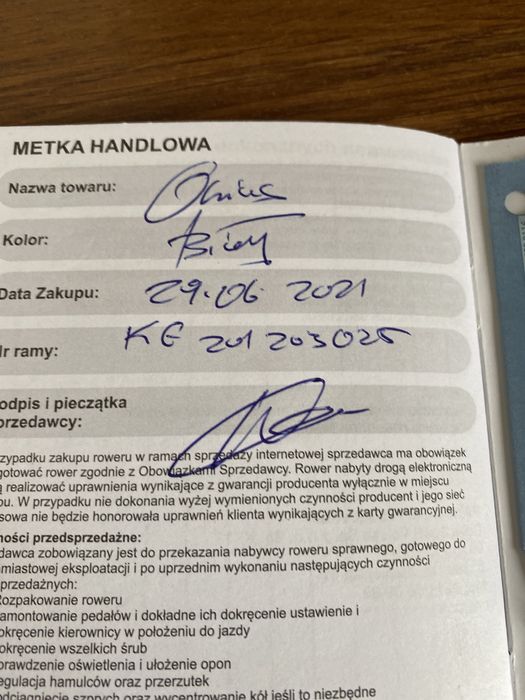 METKA HANDLOWA
Nazwa towaru:
Kolor: Biały
Data Zakupu: 29.06 2021
Nr ramy: KE 201203025
odpis i pieczątka
przedawcy:
zypadku zakupu roweru w ramach sprzedaży internetowej sprzedawca ma obowiązek
gotować rower zgodnie z Obowiązkami Sprzedawcy. Rower nabyty drogą elektroniczną
realizować uprawnienia wynikające z gwarancji producenta wyłącznie w miejscu
pu. W przypadku nie dokonania wyżej wymienionych czynności producent i jego sieć
sowa nie będzie honorowała uprawnień klienta wynikających z karty gwarancyjnej.
ności przedsprzedażne:
dawca zobowiązany jest do przekazania nabywcy roweru sprawnego, gotowego do
miastowej eksploatacji i po uprzednim wykonaniu następujących czynności
przedażnych:
Rozpakowanie roweru
amontowanie pedałów i dokładne ich dokręcenie ustawienie i
okręcenie kierownicy w położeniu do jazdy
okręcenie wszelkich śrub
prawdzenie oświetlenia i ułożenie opon
egulacja hamulców oraz przerzutek
odciągnięcie szprych oraz wycentrowanie kół jeśli to niezbędne